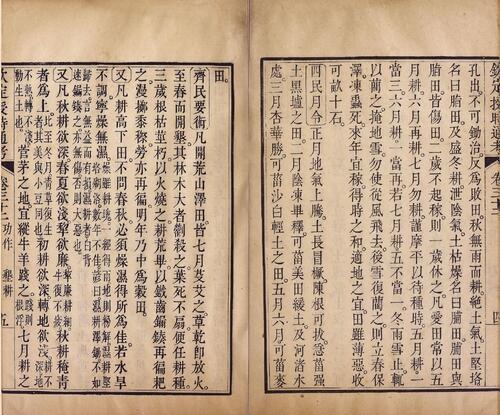 欽定授時通考 卷三十二 四
孔出不可鋤治反為敗田秋無雨而耕絕土氣土堅垎
名曰脂田及盛冬耕泄陰氣土枯燥名曰脯田脯田與
脂田皆傷田二歲不起稼則一歲休之凡愛田常以五
月耕六月再耕七月勿耕謹摩平以待種時五月耕一
當三六月耕一當再若七月耕五不當一冬雨雪止輒
以藺之掩地雪勿使從風飛去後雪復藺之則立春保
澤凍蟲死來年宜稼得時之和適地之宜田雖薄惡收
可畝十石
四民月令正月地氣上騰土長冒橛陳根可拔急菑强
土黑壚之田二月陰凍畢釋可菑美田緩土及河渚水
處三月杏華勝可菑沙白輕土之田五月六月可菑麥
田
齊民要術凡開荒山澤田皆七月芟艾之草乾即放火
至春而開墾其林木大者劉殺之葉死不扇便任耕種
三歲根枯莖朽以火燒之耕荒畢以鐵齒鎒鏃再徧杷
之漫擲黍穄勞亦再徧明年乃中為穀田
又凡耕高下田不問春秋必須燥濕得所為佳若水旱
不調寧燥無濕燥雖耕塊一經得雨地則粉解濕耕堅垎數年不佳諺曰濕耕澤鋤不如
歸去言無益而有損濕耕者白背速鎒鏃之亦無傷否則大惡也
又凡秋耕欲深春夏欲淺犂欲廉勞欲再犂廉耕細牛復不疲秋耕䅖青
者為上比至冬月青草復生者其美與小豆同也初耕欲深轉地欲淺耕不深地不熟轉不淺
動生土也菅茅之地宜縱牛羊踐之踐則根浮七月耕之
欽定授時通考 卷三十二 功作 墾耕 五